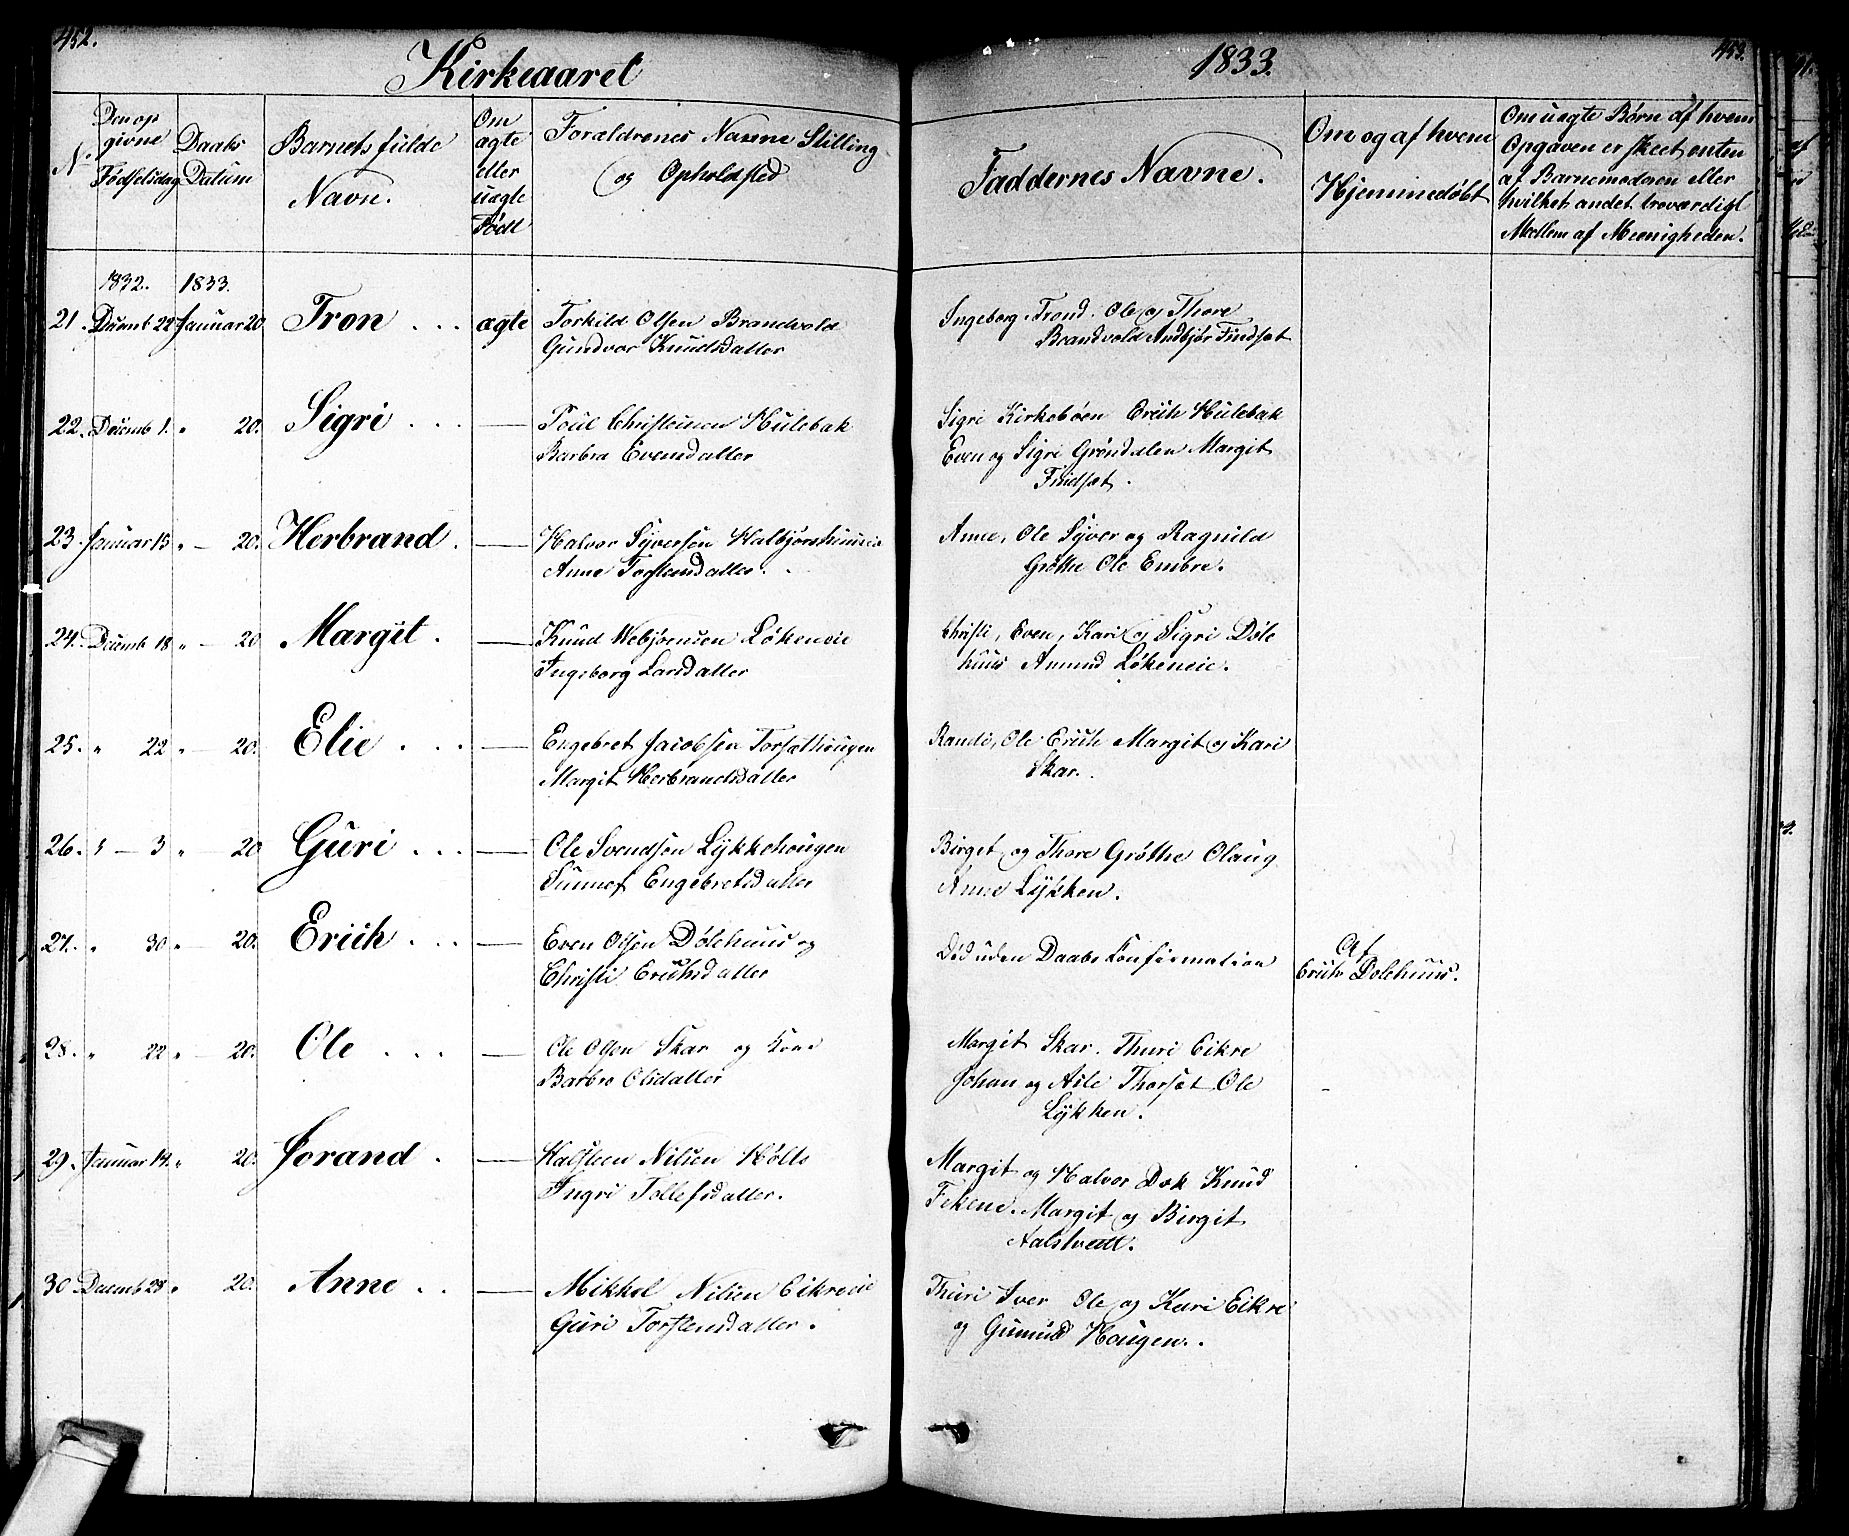 452.
Kirkeaaret
1833.
453.
N
Den op
givne
Fødselsdag
Daabs
Datum
Barnets fulde
Navn.
Om
ægte
eller
uægte
Født
Forældrenes Navne Stilling
og Opholdsted
Faddernes Navne.
Om og af hvem
Hjemmedøbt
Om uægte Børn af hvem
Opgaven er skeet enten
af Barnemoderen eller
hvilket andet troværdigt
Medlem af Meenigheden.
1832. 1833.
21. Decemb 22 Januar 20. Tron ægte Torkild Olsen Brandvold
Gundvor Knudsdatter
Ingeborg, Trond, Ole og Thore
Brandvold Andbjør Findsæt
22. Decemb 1. " 20. Sigri — Poul Christensen Hulebak
Barbra Evensdatter
Sigri Kirkebøen Erich Hulebak
Even og Sigri Grøndalen Margit
Findsæt.
23. Januar 15 " — 20. Herbrand. — Halvor Syversen Halbjørshuuseie
Anne Torstensdatter.
Anne, Ole Syver og Ragnild
Grøthe Ole Embre.
24. Decemb 18 " — 20 Margit. — Knud Webjørnsen Løkeneie
Ingeborg Larsdatter
Christi, Even, Kari og Sigri Døle
huus Amund Løkeneie.
25. " 22 " — 20. Elie — Engebret Jacobsen Torsæthougen
Margit Herbrandsdatter
Randi, Ole Erich Margit og Kari
Skar.
26. " — 3 " — 20 Guri — Ole Svendsen Lykkehougen
Sunnef Engebretsdatter
Birget og Thore Grøthe Olaug
Anne Lykken.
27. " 30 " — 20. Erich — Even Olsen Dølehuus og
Christi Erichsdatter
Død uden Daabs Confirmation
Af
Erich Dølehuus.
28. " 22 " — 20. Ole — Ole Olsen Skar og Kone
Barbro Olsdatter
Margit Skar. Thuri Eikre
Johan og Asle Thorsæt Ole
Lykken.
29. Januar 14. " 20. Jorand. — Halsteen Nilsen Hølto
Ingri Tollefsdatter.
Margit og Halvor Dok Knud
Fekene. Margit og Birgit
Aalstvedt.
30 Decemb 28 " 20. Anne — Mikkel Nilsen Eikreeie
Guri Torstensdatter.
Thuri Iver Ole og Kari Eikre
og Gumund Hougen.